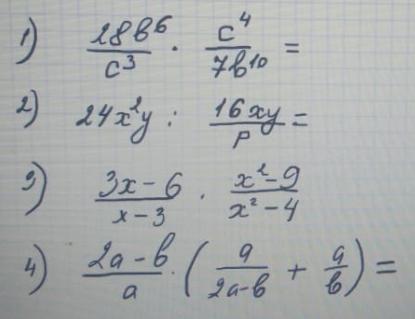 1) 28b⁶/c³ · c⁴/7b¹⁰ =
2) 24x²y : 16xy/p =
3) 3x-6/x-3 · x²-9/x²-4
4) 2a-b/a · (a/2a-b + a/b) =